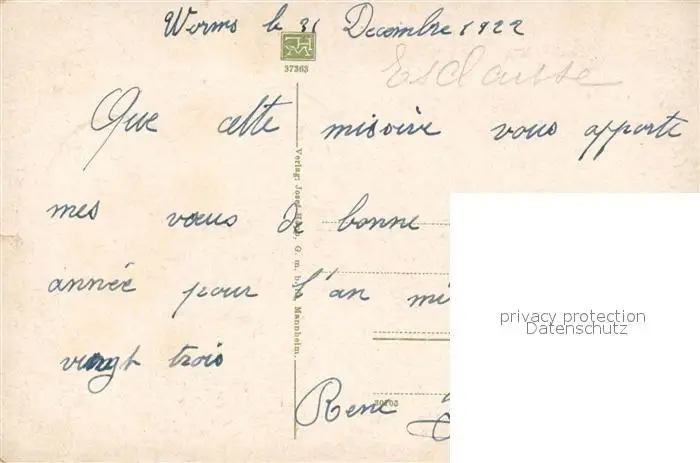 Worms le 31 Decembre 1922
37363
Esclausse
Que cette missive vous apporte
mes vœus de bonne
année pour l'an mi
vingt trois
René
Verlag: Josef G. m. b. H. Mannheim.
privacy protection
Datenschutz